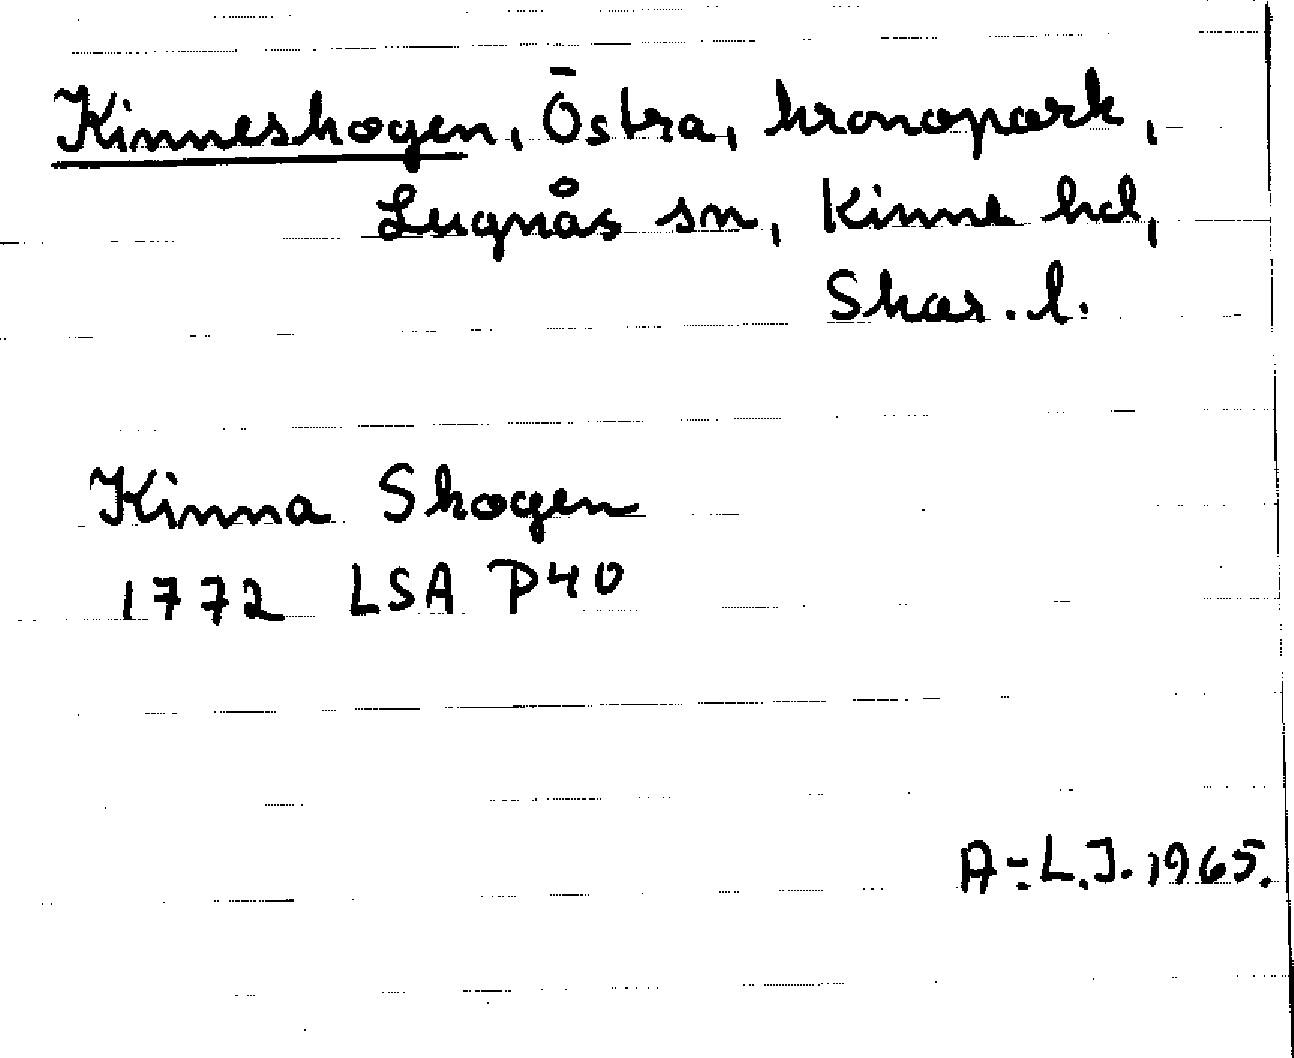 Kinneskogen, Östra, kronopark,
Lugnås sn, Kinne hd,
Skar. l.
Kinna Skogen
1772 LSA P40
A-L.J. 1965.